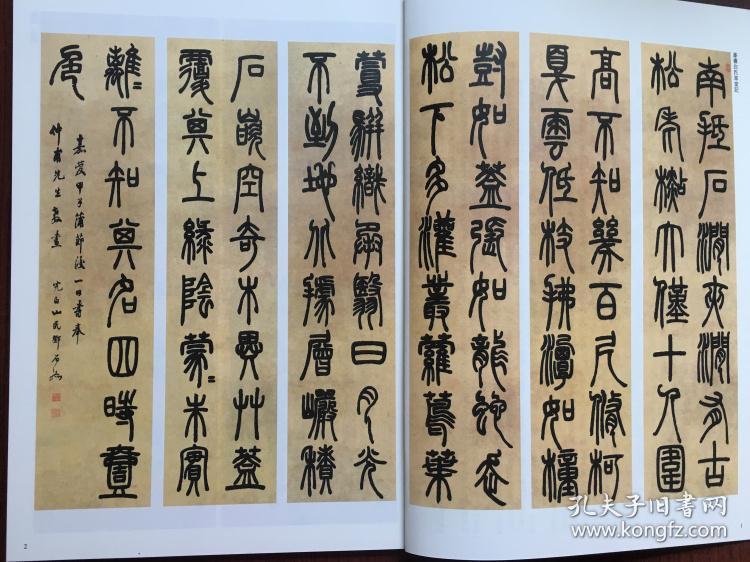 篆書白氏草堂記
南抵石澗夾澗有古
松老檆大僅十人圍
高不知幾百尺脩柯
戛雲低枝拂潭如橦
尌如蓋張如龍蛇走
松下多灌叢蘿蔦葉
蔓駢織承翳日月光
不到地北據層巖積
石嵌空奇木異艸蓋
覆其上綠陰蒙〻朱實
離〻不知其名四時壹
色
嘉慶甲子蒲節後一日書奉
仲甫先生教畫 完白山民鄧石如
2
1
孔夫子旧书网
www.kongfz.com